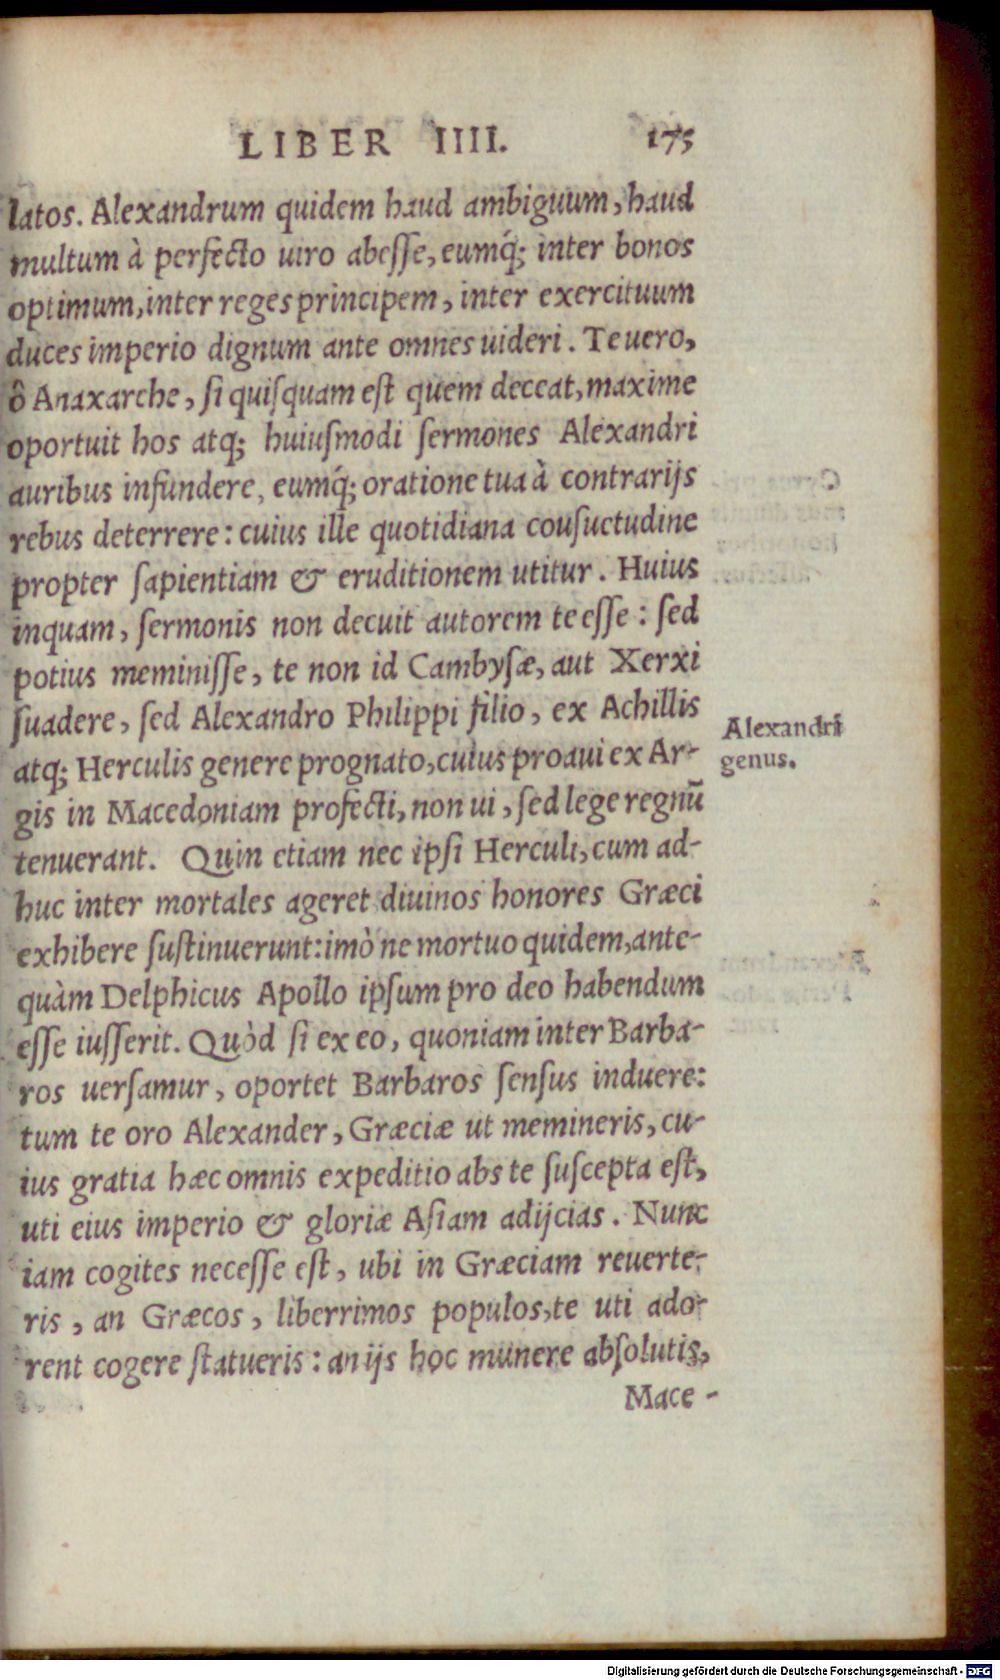 LIBER IIII. 175
latos. Alexandrum quidem haud ambiguum, haud
multum à perfecto uiro abesse, eumq́; inter bonos
optimum, inter reges principem, inter exercituum
duces imperio dignum ante omnes uideri. Te uero,
ô Anaxarche, si quisquam est quem deceat, maxime
oportuit hos atq; huiusmodi sermones Alexandri
auribus infundere, eumq́; oratione tua à contrarijs
rebus deterrere: cuius ille quotidiana cousuetudine
propter sapientiam & eruditionem utitur. Huius
inquam, sermonis non decuit autorem te esse: sed
potius meminisse, te non id Cambysæ, aut Xerxi
suadere, sed Alexandro Philippi filio, ex Achillis
atq; Herculis genere prognato, cuius proaui ex Ar-
gis in Macedoniam profecti, non ui, sed lege regnū
tenuerant. Quin etiam nec ipsi Herculi, cum ad-
huc inter mortales ageret diuinos honores Græci
exhibere sustinuerunt: imò ne mortuo quidem, ante-
quàm Delphicus Apollo ipsum pro deo habendum
esse iusserit. Quòd si ex eo, quoniam inter Barba-
ros uersamur, oportet Barbaros sensus induere:
tum te oro Alexander, Græciæ ut memineris, cu-
ius gratia hæc omnis expeditio abs te suscepta est,
uti eius imperio & gloriæ Asiam adijcias. Nunc
iam cogites necesse est, ubi in Græciam reuerte-
ris, an Græcos, liberrimos populos, te uti ado-
rent cogere statueris: an ijs hoc munere absolutis,
Mace-
Alexandri
genus.
Digitalisierung gefördert durch die Deutsche Forschungsgemeinschaft - DFG